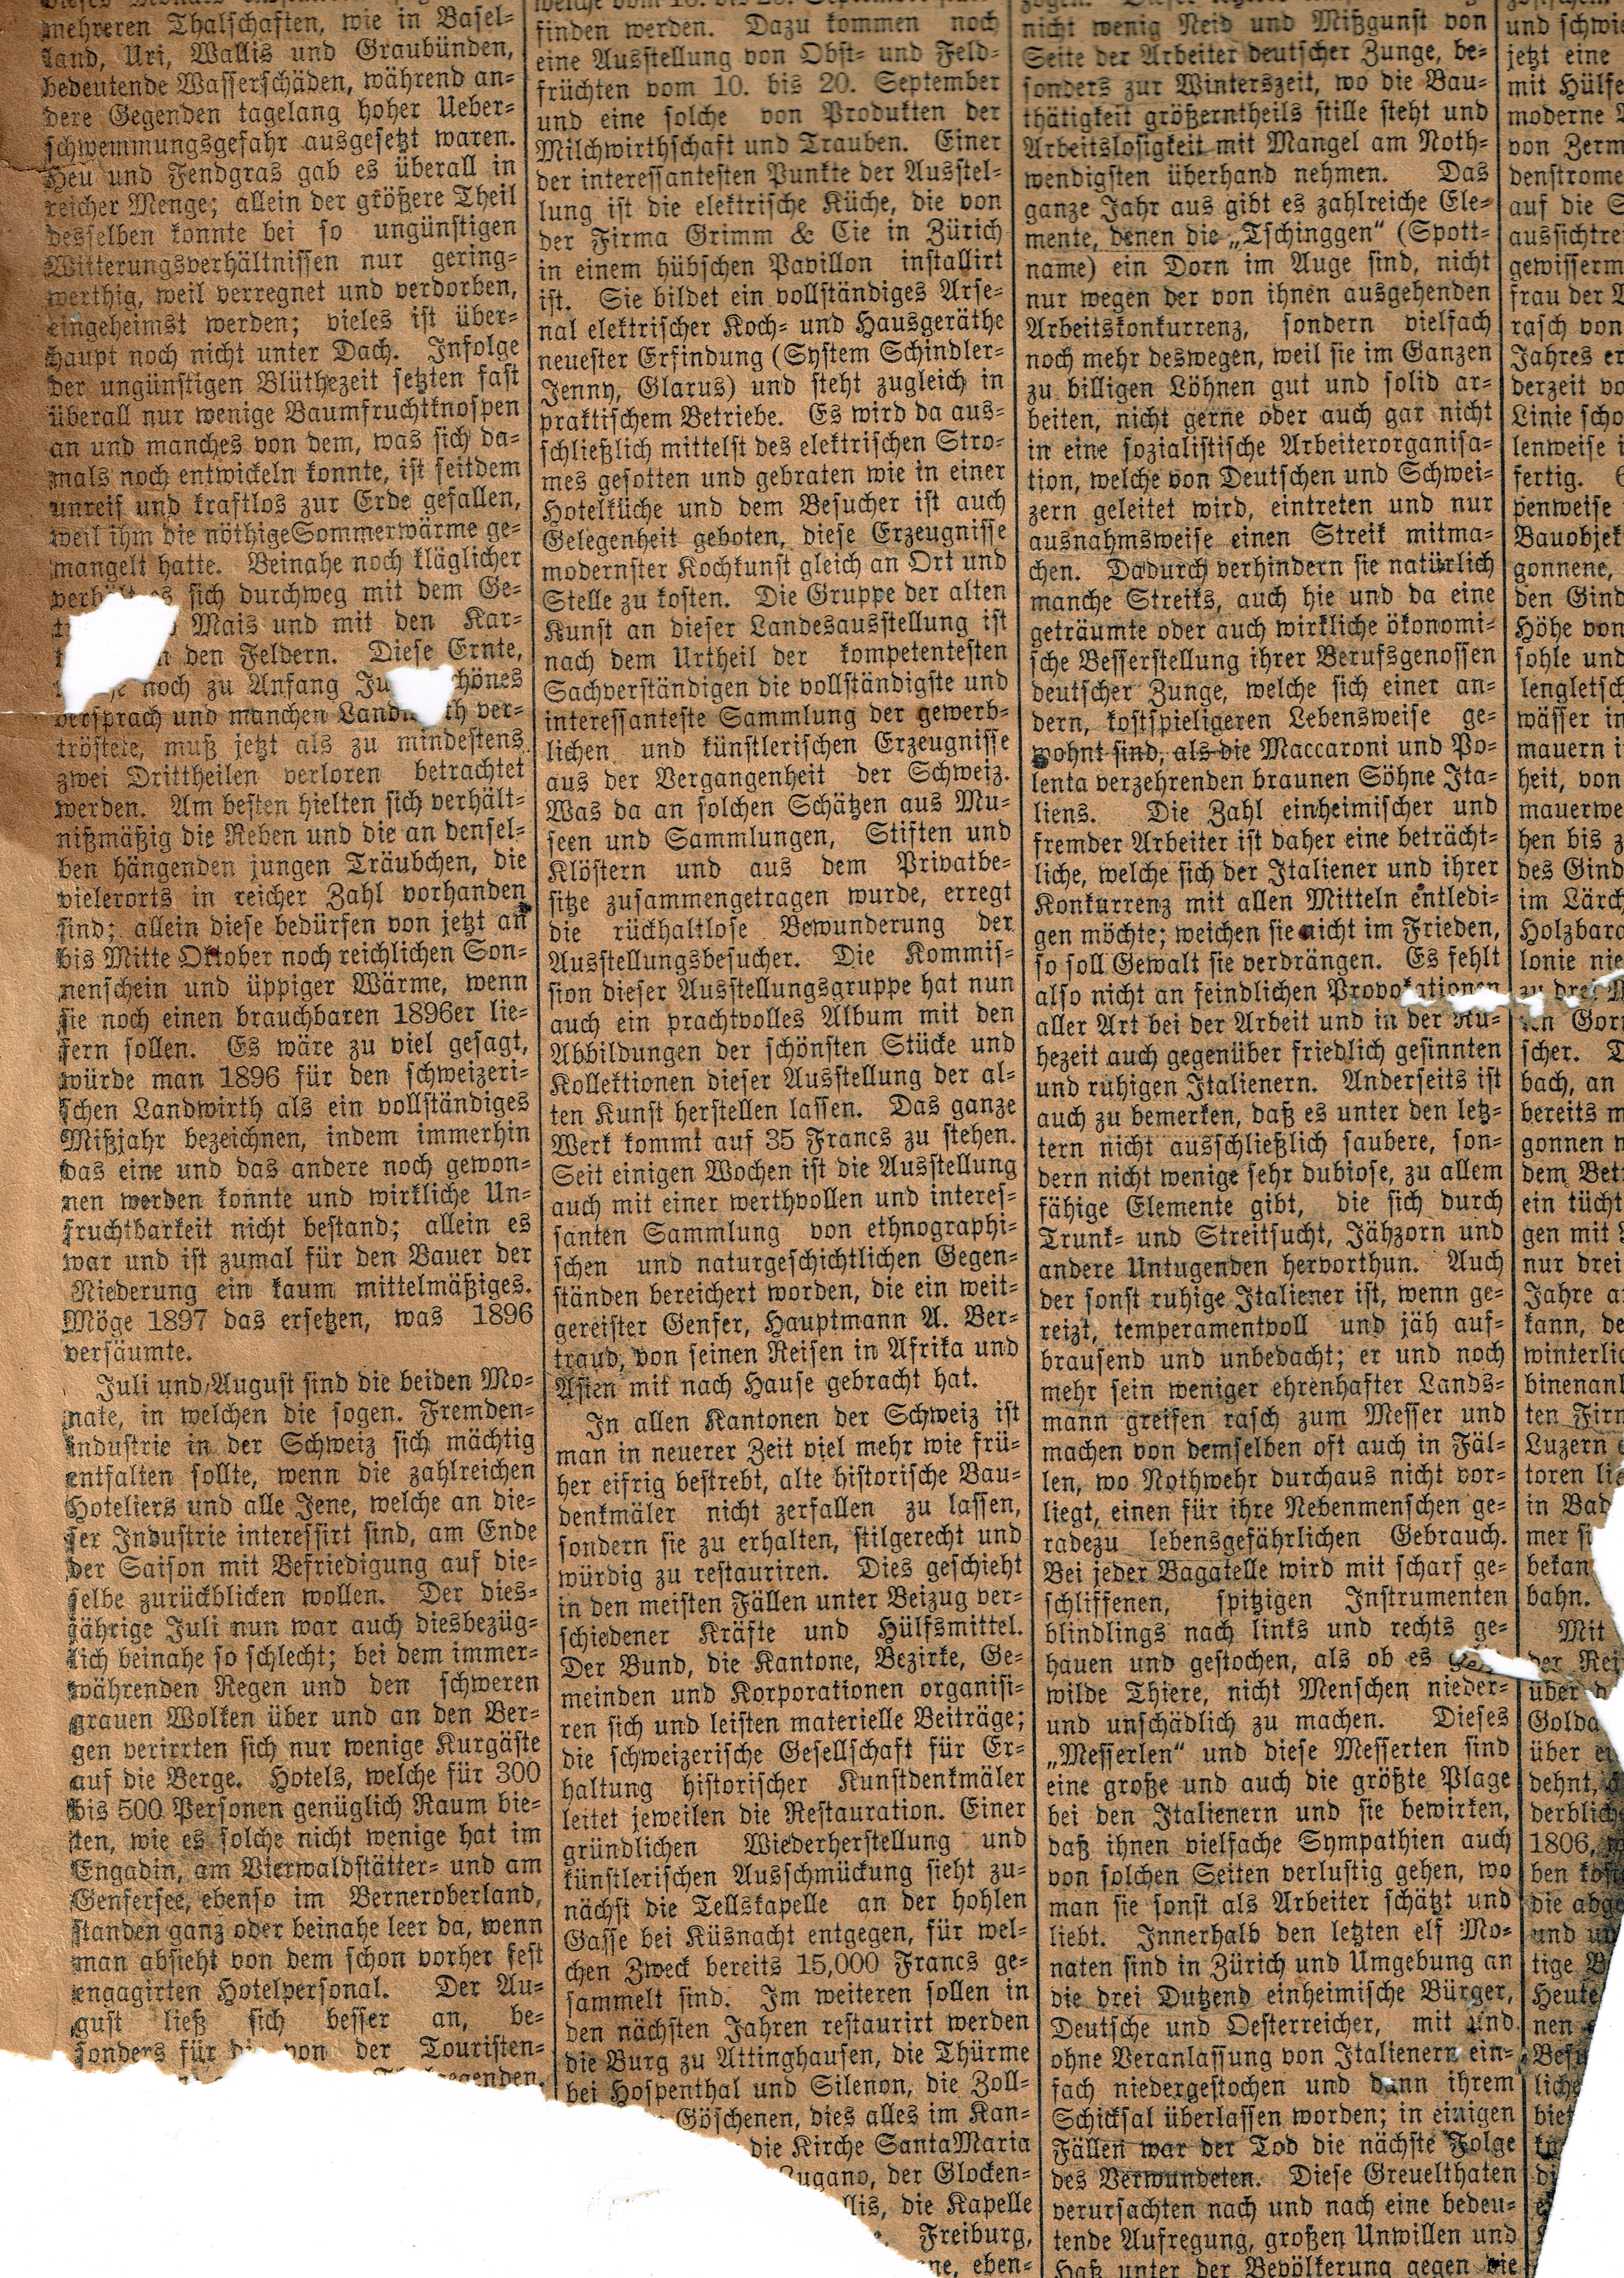 mehreren Thalschaften, wie in Basel-
land, Uri, Wallis und Graubünden,
bedeutende Wasserschäden, während an-
dere Gegenden tagelang hoher Ueber-
schwemmungsgefahr ausgesetzt waren.
Heu und Fendgras gab es überall in
reicher Menge; allein der größere Theil
desselben konnte bei so ungünstigen
Witterungsverhältnissen nur gering-
werthig, weil verregnet und verdorben,
eingeheimst werden; vieles ist über-
haupt noch nicht unter Dach. Infolge
der ungünstigen Blüthezeit setzten fast
überall nur wenige Baumfruchtknospen
an und manches von dem, was sich da-
mals noch entwickeln konnte, ist seitdem
unreif und kraftlos zur Erde gefallen,
weil ihm die nöthige Sommerwärme ge-
mangelt hatte. Beinahe noch kläglicher
verhält es sich durchweg mit dem Ge-
Mais und mit den Kar-
den Feldern. Diese Ernte,
noch zu Anfang
versprach und manchen ver-
tröstete, muß jetzt als zu mindestens
zwei Drittheilen verloren betrachtet
werden. Am besten hielten sich verhält-
nißmäßig die Reben und die an densel-
ben hängenden jungen Träubchen, die
vielerorts in reicher Zahl vorhanden
sind; allein diese bedürfen von jetzt an
bis Mitte Oktober noch reichlichen Son-
nenschein und üppiger Wärme, wenn
sie noch einen brauchbaren 1896er lie-
fern sollen. Es wäre zu viel gesagt,
würde man 1896 für den schweizeri-
schen Landwirth als ein vollständiges
Mißjahr bezeichnen, indem immerhin
das eine und das andere noch gewon-
nen werden konnte und wirkliche Un-
fruchtbarkeit nicht bestand; allein es
war und ist zumal für den Bauer der
Niederung ein kaum mittelmäßiges.
Möge 1897 das ersetzen, was 1896
versäumte.
Juli und August sind die beiden Mo-
nate, in welchen die sogen. Fremden-
industrie in der Schweiz sich mächtig
entfalten sollte, wenn die zahlreichen
Hoteliers und alle Jene, welche an die-
ser Industrie interessirt sind, am Ende
der Saison mit Befriedigung auf die-
selbe zurückblicken wollen. Der dies-
jährige Juli nun war auch diesbezüg-
lich beinahe so schlecht; bei dem immer-
währenden Regen und den schweren
grauen Wolken über und an den Ber-
gen verirrten sich nur wenige Kurgäste
auf die Berge. Hotels, welche für 300
bis 500 Personen genüglich Raum bie-
ten, wie es solche nicht wenige hat im
Engadin, am Vierwaldstätter- und am
Genfersee, ebenso im Berneroberland,
standen ganz oder beinahe leer da, wenn
man absieht von dem schon vorher fest
engagirten Hotelpersonal. Der Au-
gust ließ sich besser an, be-
sonders für die von der Touristen-
finden werden. Dazu kommen noch
eine Ausstellung von Obst- und Feld-
früchten vom 10. bis 20. September
und eine solche von Produkten der
Milchwirthschaft und Trauben. Einer
der interessantesten Punkte der Ausstel-
lung ist die elektrische Küche, die von
der Firma Grimm & Cie in Zürich
in einem hübschen Pavillon installirt
ist. Sie bildet ein vollständiges Arse-
nal elektrischer Koch- und Hausgeräthe
neuester Erfindung (System Schindler-
Jenny, Glarus) und steht zugleich in
praktischem Betriebe. Es wird da aus-
schließlich mittelst des elektrischen Stro-
mes gesotten und gebraten wie in einer
Hotelküche und dem Besucher ist auch
Gelegenheit geboten, diese Erzeugnisse
modernster Kochkunst gleich an Ort und
Stelle zu kosten. Die Gruppe der alten
Kunst an dieser Landesausstellung ist
nach dem Urtheil der kompetentesten
Sachverständigen die vollständigste und
interessanteste Sammlung der gewerb-
lichen und künstlerischen Erzeugnisse
aus der Vergangenheit der Schweiz.
Was da an solchen Schätzen aus Mu-
seen und Sammlungen, Stiften und
Klöstern und aus dem Privatbe-
sitze zusammengetragen wurde, erregt
die rückhaltlose Bewunderung der
Ausstellungsbesucher. Die Kommis-
sion dieser Ausstellungsgruppe hat nun
auch ein prachtvolles Album mit den
Abbildungen der schönsten Stücke und
Kollektionen dieser Ausstellung der al-
ten Kunst herstellen lassen. Das ganze
Werk kommt auf 35 Francs zu stehen.
Seit einigen Wochen ist die Ausstellung
auch mit einer werthvollen und interes-
santen Sammlung von ethnographi-
schen und naturgeschichtlichen Gegen-
ständen bereichert worden, die ein weit-
gereister Genfer, Hauptmann A. Ber-
traud, von seinen Reisen in Afrika und
Asien mit nach Hause gebracht hat.
In allen Kantonen der Schweiz ist
man in neuerer Zeit viel mehr wie frü-
her eifrig bestrebt, alte historische Bau-
denkmäler nicht zerfallen zu lassen,
sondern sie zu erhalten, stilgerecht und
würdig zu restauriren. Dies geschieht
in den meisten Fällen unter Beizug ver-
schiedener Kräfte und Hülfsmittel.
Der Bund, die Kantone, Bezirke, Ge-
meinden und Korporationen organisi-
ren sich und leisten materielle Beiträge;
die schweizerische Gesellschaft für Er-
haltung historischer Kunstdenkmäler
leitet jeweilen die Restauration. Einer
gründlichen Wiederherstellung und
künstlerischen Ausschmückung sieht zu-
nächst die Tellskapelle an der hohlen
Gasse bei Küsnacht entgegen, für wel-
chen Zweck bereits 15,000 Francs ge-
sammelt sind. Im weiteren sollen in
den nächsten Jahren restaurirt werden
die Burg zu Attinghausen, die Thürme
bei Hospenthal und Silenon, die Zoll-
Göschenen, dies alles im Kan-
die Kirche Santa Maria
Lugano, der Glocken-
die Kapelle
Freiburg,
eben-
nicht wenig Neid und Mißgunst von
Seite der Arbeiter deutscher Zunge, be-
sonders zur Winterszeit, wo die Bau-
thätigkeit größerntheils stille steht und
Arbeitslosigkeit mit Mangel am Noth-
wendigsten überhand nehmen. Das
ganze Jahr aus gibt es zahlreiche Ele-
mente, denen die „Tschinggen“ (Spott-
name) ein Dorn im Auge sind, nicht
nur wegen der von ihnen ausgehenden
Arbeitskonkurrenz, sondern vielfach
noch mehr deswegen, weil sie im Ganzen
zu billigen Löhnen gut und solid ar-
beiten, nicht gerne oder auch gar nicht
in eine sozialistische Arbeiterorganisa-
tion, welche von Deutschen und Schwei-
zern geleitet wird, eintreten und nur
ausnahmsweise einen Streik mitma-
chen. Dadurch verhindern sie natürlich
manche Streiks, auch hie und da eine
geträumte oder auch wirkliche ökonomi-
sche Besserstellung ihrer Berufsgenossen
deutscher Zunge, welche sich einer an-
dern, kostspieligeren Lebensweise ge-
wohnt sind, als die Maccaroni und Po-
lenta verzehrenden braunen Söhne Ita-
liens. Die Zahl einheimischer und
fremder Arbeiter ist daher eine beträcht-
liche, welche sich der Italiener und ihrer
Konkurrenz mit allen Mitteln entledi-
gen möchte; weichen sie nicht im Frieden,
so soll Gewalt sie verdrängen. Es fehlt
also nicht an feindlichen Provokationen
aller Art bei der Arbeit und in der Ru-
hezeit auch gegenüber friedlich gesinnten
und ruhigen Italienern. Anderseits ist
auch zu bemerken, daß es unter den letz-
tern nicht ausschließlich saubere, son-
dern nicht wenige sehr dubiose, zu allem
fähige Elemente gibt, die sich durch
Trunk- und Streitsucht, Jähzorn und
andere Untugenden hervorthun. Auch
der sonst ruhige Italiener ist, wenn ge-
reizt, temperamentvoll und jäh auf-
brausend und unbedacht; er und noch
mehr sein weniger ehrenhafter Lands-
mann greifen rasch zum Messer und
machen von demselben oft auch in Fäl-
len, wo Nothwehr durchaus nicht vor-
liegt, einen für ihre Nebenmenschen ge-
radezu lebensgefährlichen Gebrauch.
Bei jeder Bagatelle wird mit scharf ge-
schliffenen, spitzigen Instrumenten
blindlings nach links und rechts ge-
hauen und gestochen, als ob es
wilde Thiere, nicht Menschen nieder-
und unschädlich zu machen. Dieses
„Messerlen“ und diese Messerten sind
eine große und auch die größte Plage
bei den Italienern und sie bewirken,
daß ihnen vielfache Sympathien auch
von solchen Seiten verlustig gehen, wo
man sie sonst als Arbeiter schätzt und
liebt. Innerhalb den letzten elf Mo-
naten sind in Zürich und Umgebung an
die drei Dutzend einheimische Bürger,
Deutsche und Oesterreicher, mit und
ohne Veranlassung von Italienern ein-
fach niedergestochen und dann ihrem
Schicksal überlassen worden; in einigen
Fällen war der Tod die nächste Folge
des Verwundeten. Diese Greuelthaten
verursachten nach und nach eine bedeu-
tende Aufregung, großen Unwillen und
Haß unter der Bevölkerung gegen die
und
jetzt eine
mit Hülfe
moderne
von Zerm
denstrome
auf die
aussichtre
gewisserm
frau der
rasch von
Jahres er
derzeit vo
Linie scho
lenweise i
fertig.
penweise
Bauobjek
gonnene,
den Gind
Höhe von
sohle und
lengletsch
wässer in
mauern i
heit, von
mauerwe
hen bis z
des Gind
im Lärch
Holzbara
lonie nie
zu drei
Gor
scher.
bach, an
bereits m
gonnen
dem Bet
ein tücht
gen mit
nur drei
Jahre a
kann, de
winterlic
binenanl
ten Firm
Luzern
toren lie
in Bad
mer si
bekan
bahn.
Mit
der
über
Golda
über
dehnt,
derblich
1806,
ben
die
und
tige
Heute
nen